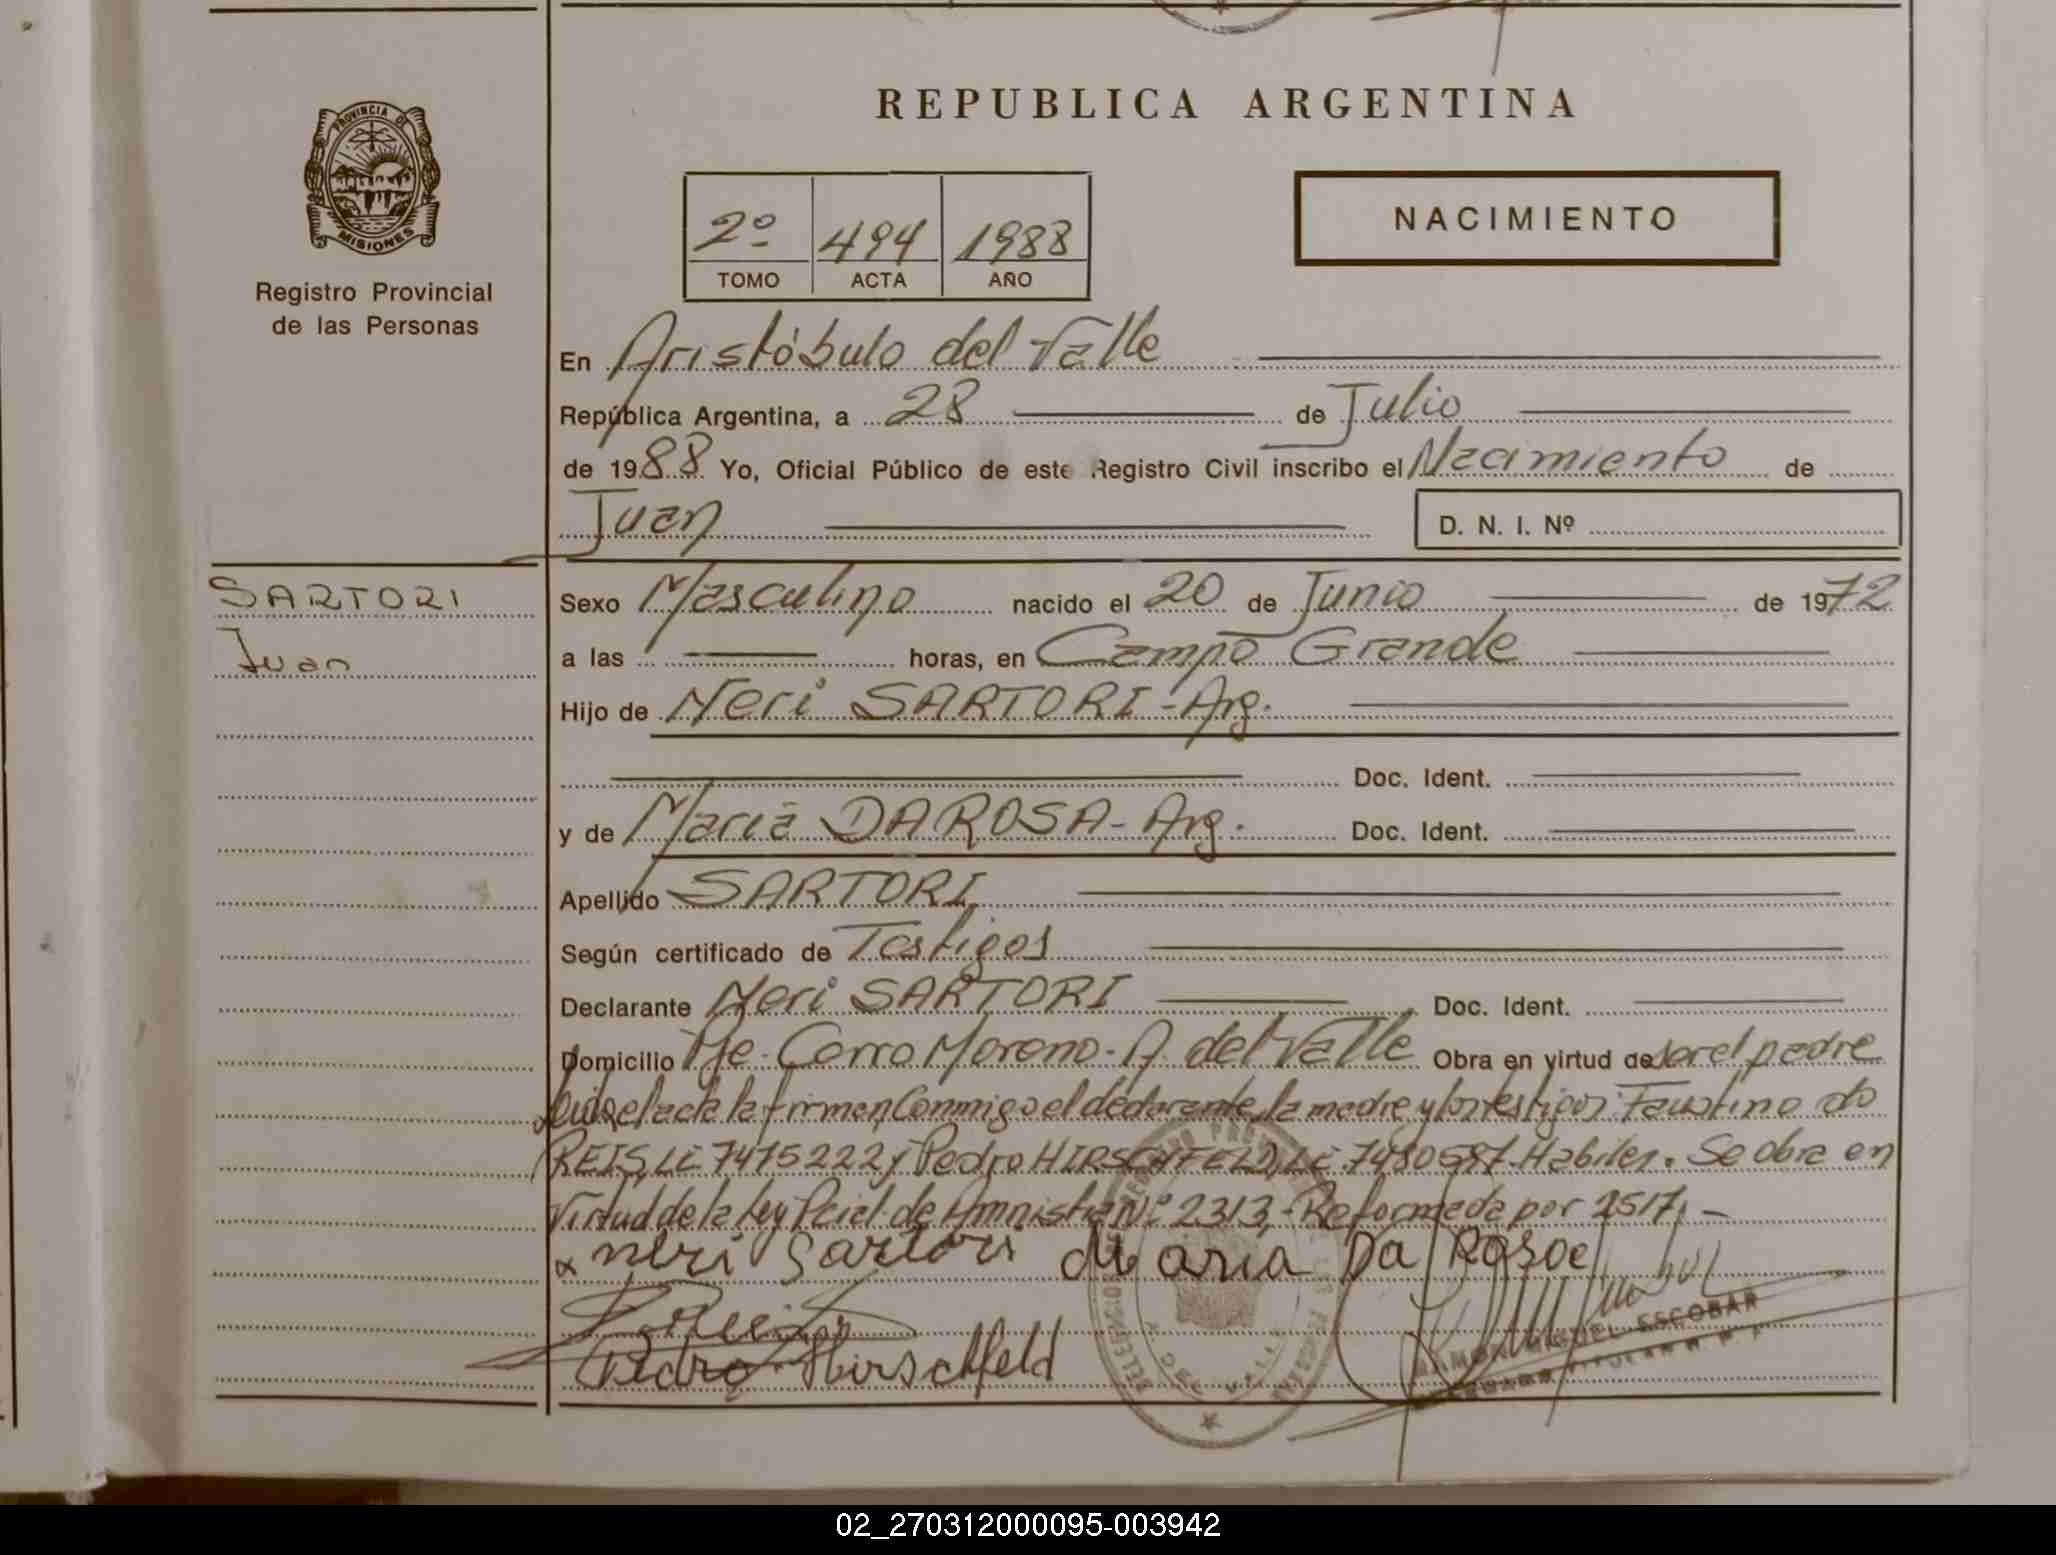 REPUBLICA ARGENTINA
PROVINCIA DE
MISIONES
Registro Provincial
de las Personas
2º 494 1988
TOMO ACTA AÑO
NACIMIENTO
En Aristóbulo del Valle
República Argentina, a 28 de Julio
de 1988 Yo, Oficial Público de este Registro Civil inscribo el Nacimiento de
Juan D. N. I. Nº
SARTORI
Juan
Sexo Masculino nacido el 20 de Junio de 1972
a las horas, en Campo Grande
Hijo de Neri SARTORI - Arg.
Doc. Ident.
y de Maria DA ROSA - Arg. Doc. Ident.
Apellido SARTORI
Según certificado de Testigos
Declarante Neri SARTORI Doc. Ident.
Domicilio Pje. Cerro Moreno - A. del Valle Obra en virtud de ser el padre
Leída el acta la firman Conmigo el declarante, la madre y los testigos Faustino do
REIS, LE 7475222 y Pedro HIRSCHFELD, LE. Habiles. Se obra en
Virtud de la Ley Pcial. de Amnistia Nº 2313, - Reformada por 2517. -
neri Sartori Maria Da Rosa
Pedro Hirschfeld
RAMON MIGUEL ESCOBAR
02_270312000095-003942